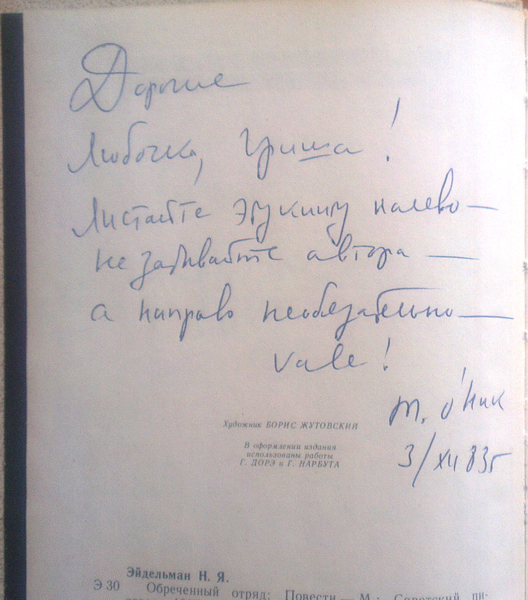 Дорогие
Любочка, Гриша!
Листайте эту книгу налево —
не забывайте автора —
а направо необязательно —
Vale!
Т. О'Ник
3/XII 83г
Художник БОРИС ЖУТОВСКИЙ
В оформлении издания
использованы работы
Г. ДОРЭ и Г. НАРБУТА
Эйдельман Н. Я.
Э 30 Обреченный отряд: Повести.— М.: Советский пи-